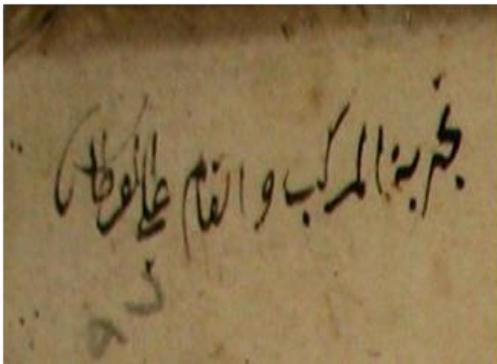 تجربة المركب و القلم علي القرطاس